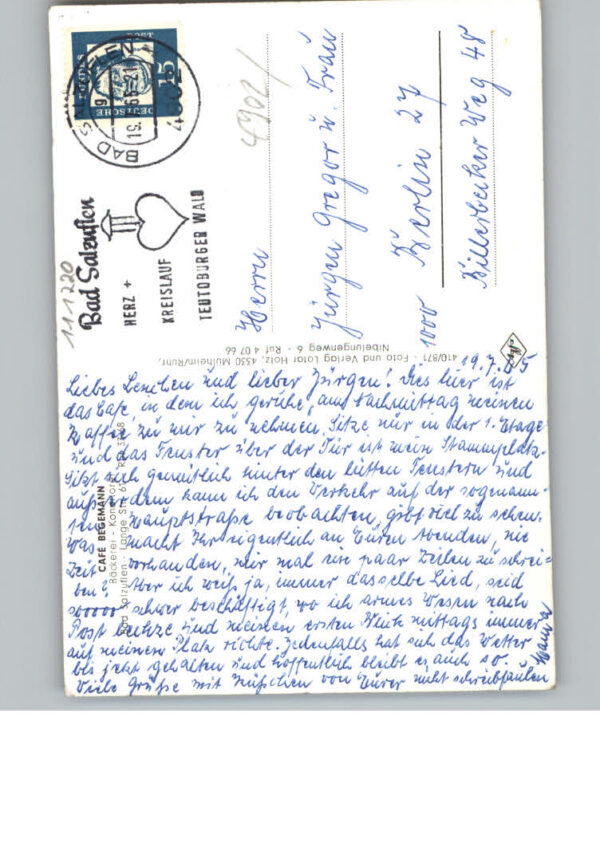 DEUTSCHE BUNDESPOST
15
BAD SALZUFLEN 1
19.7.65-21
4902
Bad Salzuflen
HERZ +
KREISLAUF
TEUTOBURGER WALD
111220
4902/
Herrn
Jürgen Gregor u. Frau
1000 Berlin 27
Billerbecker Weg 48
410/871 · Foto und Verlag Lotar Holz, 4330 Mülheim/Ruhr,
Nibelungenweg 6 · Ruf 4 07 66
CAFÉ BEGEMANN
Bäckerei · Konditorei
Bad Salzuflen · Lange Str.
19.7.65
Liebes Lenchen und lieber Jürgen! Dies hier ist
das Cafe, in dem ich geruhe, am Nachmittag meinen
Kaffee zu mir zu nehmen. Sitze nur in der 1. Etage
und das Fenster über der Tür ist mein Stammplatz.
Sitzt sich gemütlich hinter den Fenstern und
außerdem kann ich den Verkehr auf der sogenann-
ten Hauptstraße beobachten, gibt viel zu sehen.
Was macht Ihr eigentlich an Euren Abenden, nie
Zeit vorhanden, mir mal ein paar Zeilen zu schrei-
ben? Aber ich weiß ja, immer dasselbe Lied, seid
sooooo schwer beschäftigt, wo ich armes Wesen nach
Post lechze und meinen ersten Blick mittags immer
auf meinen Platz richte. Jedenfalls hat sich das Wetter
bis jetzt gehalten und hoffentlich bleibt es auch so.
Viele Grüße mit Küßchen von Eurer nicht schreibfaulen